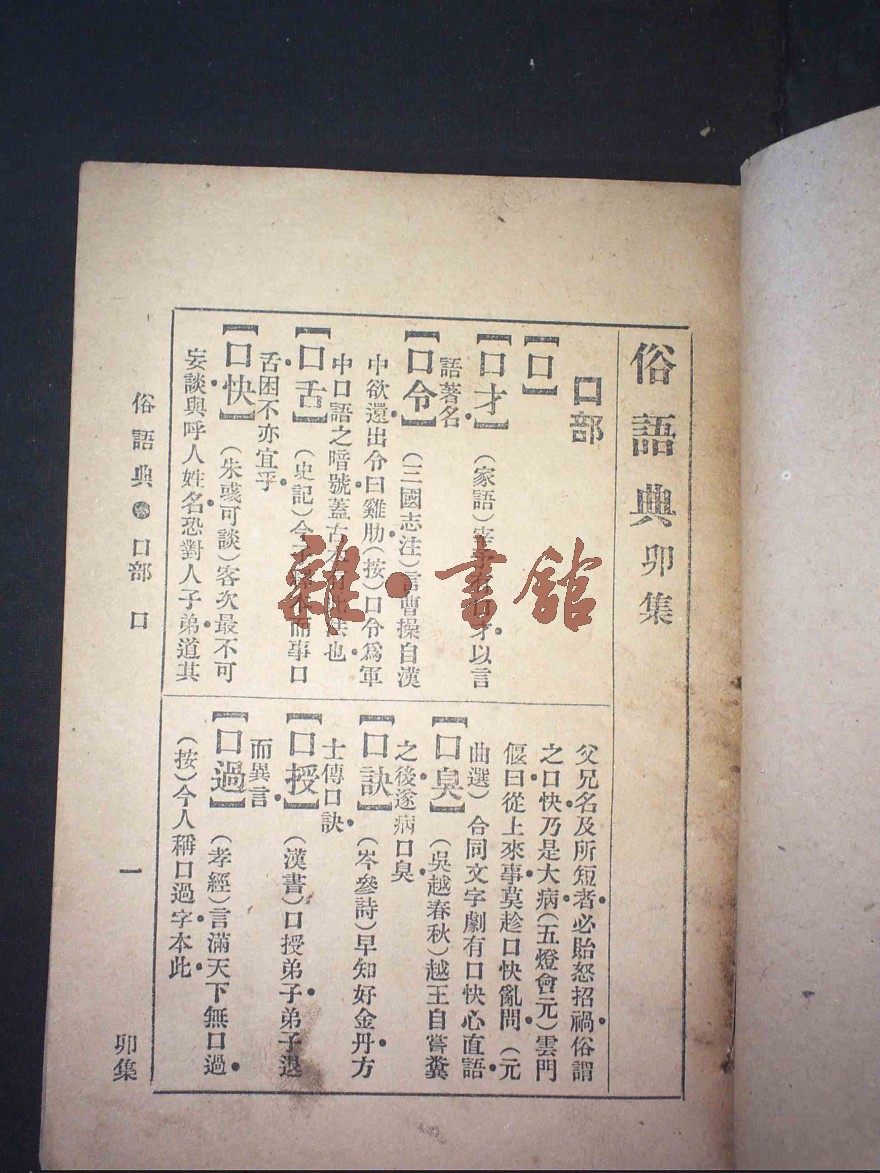 俗語典 卯集
口部
【口】
【口才】 (家語)宰予有口才以言
語著名
【口令】 (三國志注)言曹操自漢
中欲還出令曰雞肋(按)口令爲軍
中口語之暗號蓋古 法也
【口舌】 (史記)今 而事口
舌困不亦宜乎
【口快】 (朱彧可談)客次最不可
妄談與呼人姓名恐對人子弟道其
父兄名及所短者必貽怒招禍俗謂
之口快乃是大病(五燈會元)雲門
偃曰從上來事莫趁口快亂問 (元
曲選) 合同文字劇有口快心直語
【口臭】 (吳越春秋)越王自嘗糞
之後遂病口臭
【口訣】 (岑參詩)早知好金丹方
士傳口訣
【口授】 (漢書)口授弟子弟子退
而異言
【口過】 (孝經)言滿天下無口過
(按)今人稱口過字本此
俗語典 口部 口
一
卯集
雜·書館